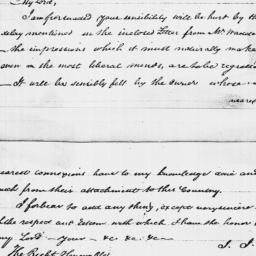 My Lord,
I am persuaded your sensibility will be hurt by the
delay mentioned in the inclosed Letter from Mr.
the impressions which it must naturally make
even in the most liberal minds, are to be regretted
It will be sensibly felt by the Owner whose
nearest
nearest connexions have to my knowledge done and
much from their attachment to this Country.
I forbear to add any thing, except
the respect and Esteem with which I have the honor
my Lord - your - &c. &c. &c.
J. J.
The Right Honorable